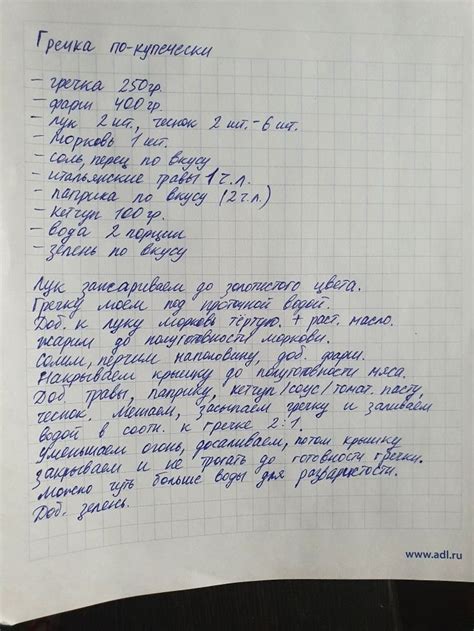 Гречка по-купечески
- гречка 250гр.
- фарш 400гр.
- лук 2 шт., чеснок 2 шт.-6 шт.
- Морковь 1 шт.
- соль, перец по вкусу
- итальянские травы 1 ч.л.
- паприка по вкусу (2 ч.л.)
- Кетчуп 100гр.
- вода 2 порции
- зелень по вкусу
Лук зажариваем до золотистого цвета.
Гречку моем под проточной водой.
Доб. к луку морковь тёртую. + раст. масло.
жарим до полуготовности моркови.
Солим, перчим наполовину, доб. фарш.
Накрываем крышку до полуготовности мяса.
Доб. травы, паприку, кетчуп/соус/томат. пасту,
чеснок. Мешаем, засыпаем гречку и заливаем
водой в соотн. к гречке 2:1.
Уменьшаем огонь, досаливаем, потом крышку
закрываем и не трогать до готовности гречки.
Можно чуть больше воды для разваристости.
Доб. зелень.
www.adl.ru